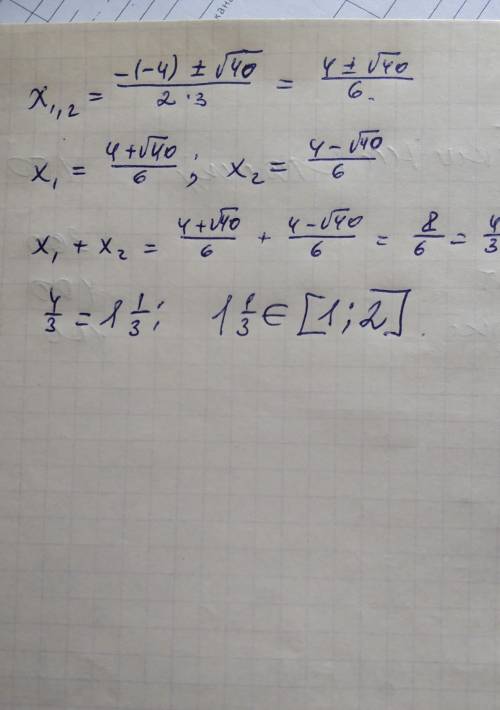 x₁,₂ = (-(-4) ± √40)/(2·3) = (4 ± √40)/6.
x₁ = (4+√40)/6; x₂ = (4-√40)/6
x₁ + x₂ = (4+√40)/6 + (4-√40)/6 = 8/6 = 4/3
4/3 = 1 1/3; 1 1/3 ∈ [1; 2].